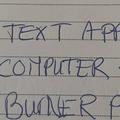 TEXT APP
COMPUTER -
BURNER P